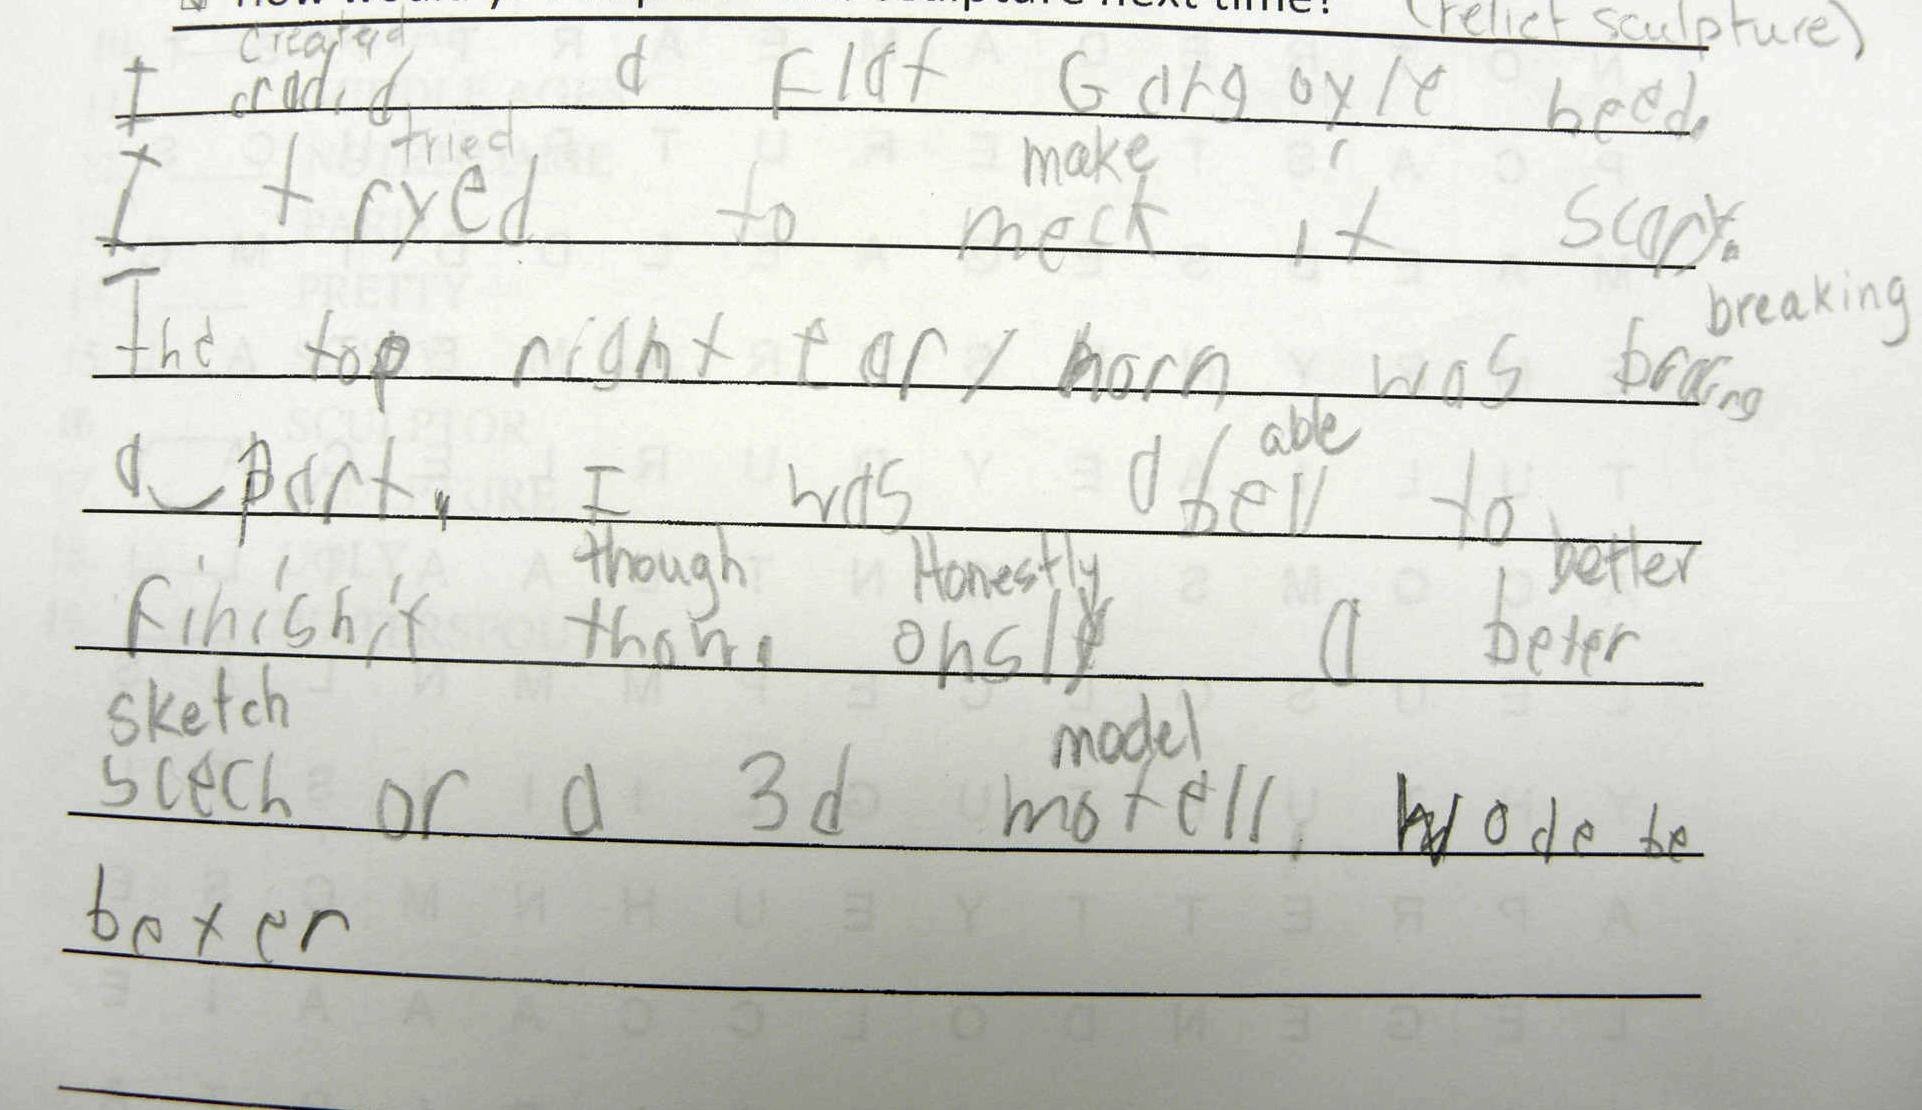 sculpture next time? (relief sculpture)
created
I a Flat Gargoyle heed.
tried make
I tryed to meck it scary.
breaking
the top right ear/horn was bracing
a part. I was able
abell to
though Honestly better
finish it thoh. onsly a beter
sketch model
scech or a 3d motell, wode be
beter